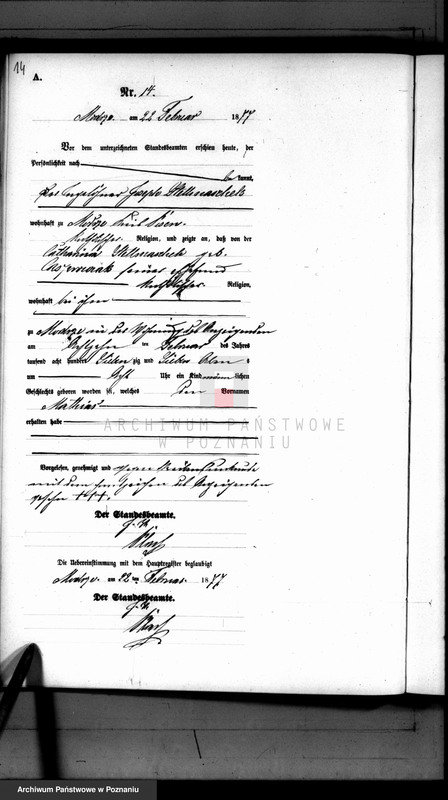 14
A.
Nr. 14.
am 22 Februar 1877
Vor dem unterzeichneten Standesbeamten erschien heute, der
Persönlichkeit nach
kannt,
der Tagelöhner Joseph
wohnhaft zu
katholischer Religion, und zeigte an, daß von der
Catharina geb.
seiner Ehefrau
katholischer Religion,
wohnhaft bei ihm
zu in der Wohnung des Anzeigenden
am achtzehn ten Februar des Jahres
tausend acht hundert sieben zig und sieben
um acht Uhr ein Kind männlichen
Geschlechts geboren worden sei, welches den Vornamen
Mathias
erhalten habe
ARCHIWUM PAŃSTWOWE
W POZNANIU
Vorgelesen, genehmigt und wegen Schreibensunkunde
mit dem Handzeichen des Anzeigenden
versehen +++.
Der Standesbeamte.
Die Uebereinstimmung mit dem Hauptregister beglaubigt
am 22 ten Februar 1877
Der Standesbeamte.
Archiwum Państwowe w Poznaniu